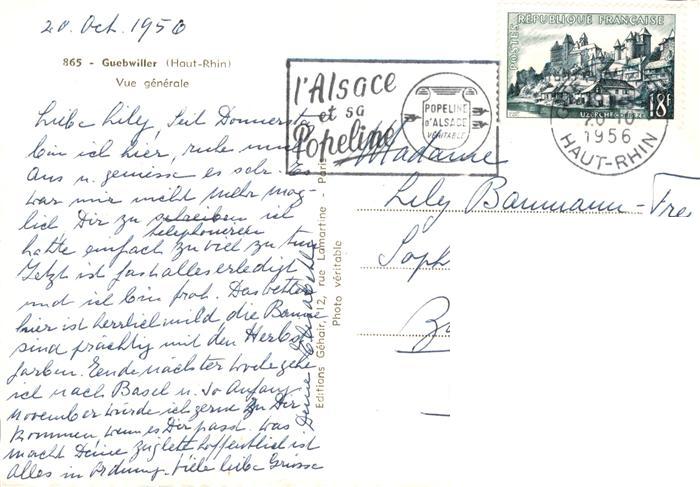 20. Oct. 1956
865 - Guebwiller (Haut-Rhin)
Vue générale
Liebe Lily, Seit Donnerstag
bin ich hier, ruhe mich
aus u. geniesse es sehr. Es
war mir nicht mehr mög-
lich Dir zu schreiben ich
telephonieren
hatte einfach zu viel zu tun
Jetzt ist fast alles erledigt
und ich bin froh. Das Wetter
hier ist herrlich mild, die Bäume
sind prächtig mit den Herbst
farben. Ende nächster Woche gehe
ich nach Basel u. so Anfang
November würde ich gerne zu Dir
kommen, wenn es Dir passt. Was
macht Deine hoffentlich ist
alles in Ordnung. Viele liebe Grüsse
Deine
Editions Géhair, 112, rue Lamartine - Paris
Photo véritable
l'Alsace
et sa
Popeline
POPELINE
D'ALSACE
VÉRITABLE
POSTES RÉPUBLIQUE FRANÇAISE
UZERCHE
18F
1956
HAUT-RHIN
Madame
Lily Baumann-Frey
Soph